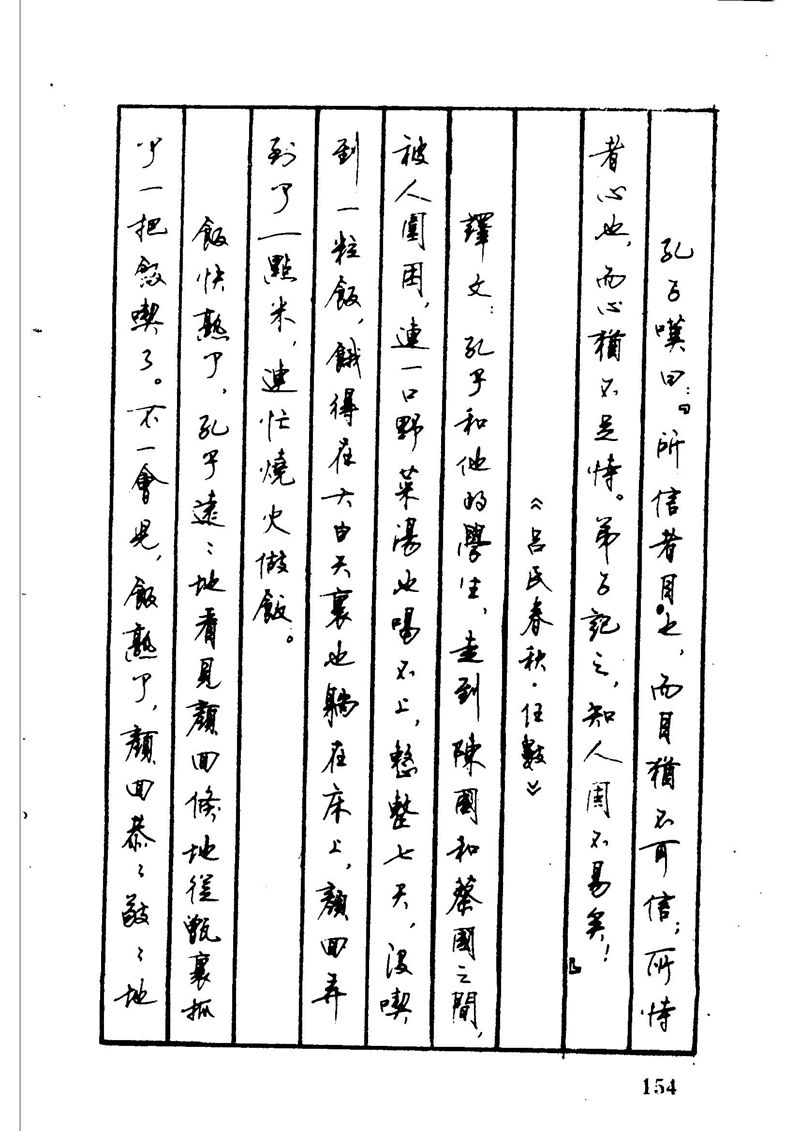 孔子嘆曰：“所信者目也，而目猶不可信；所恃
者心也，而心猶不足恃。弟子記之，知人固不易矣！”
《吕氏春秋·任數》
譯文：孔子和他的學生，走到陳國和蔡國之間，
被人圍困，連一口野菜湯也喝不上，整整七天，没喫
到一粒飯，餓得在大白天裏也躺在床上，顔回弄
到了一點米，連忙燒火做飯。
飯快熟了，孔子遠遠地看見顔回倏地從甑裏抓
了一把飯喫了。不一會兒，飯熟了，顔回恭恭敬敬地
154